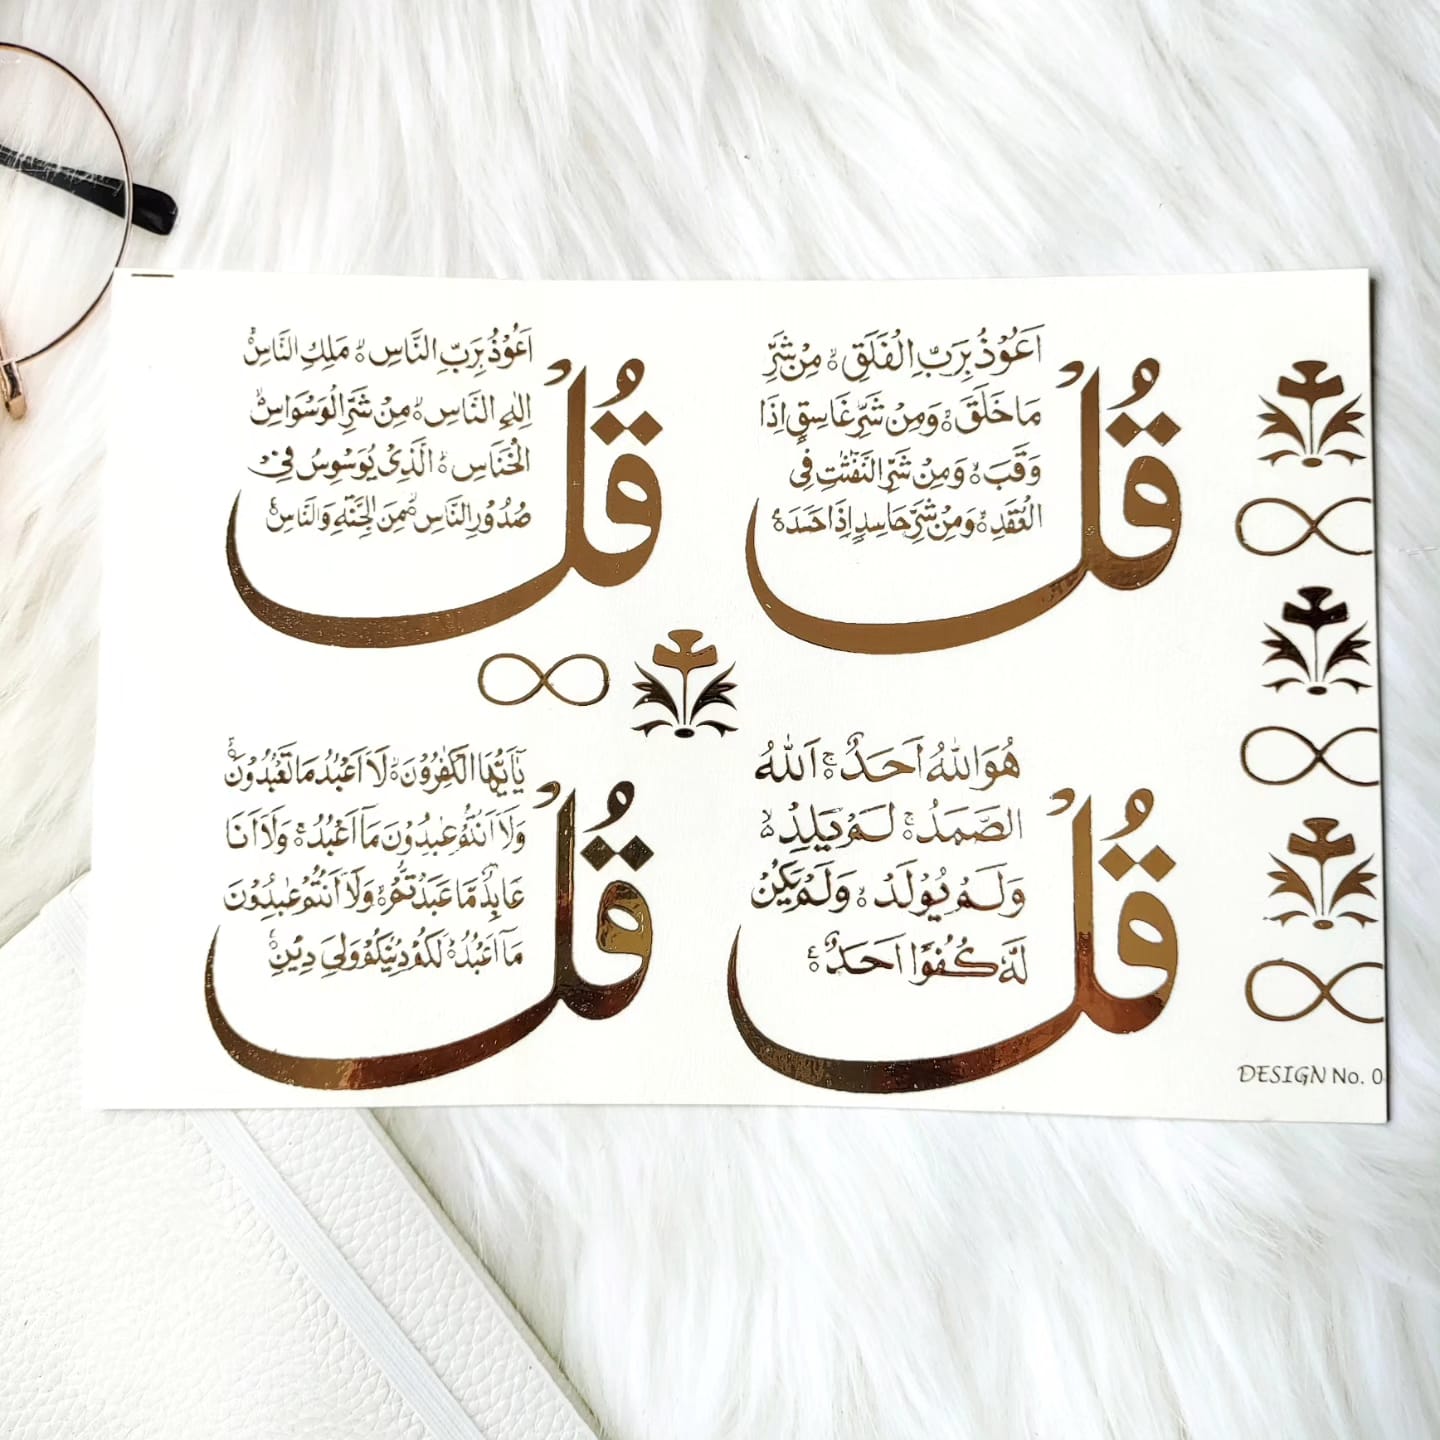 قُلْ
اَعُوْذُ بِرَبِّ الْفَلَقِ ۙ مِنْ شَرِّ
مَا خَلَقَ ۙ وَمِنْ شَرِّ غَاسِقٍ اِذَا
وَقَبَ ۙ وَمِنْ شَرِّ النَّفّٰثٰتِ فِی
الْعُقَدِ ۙ وَمِنْ شَرِّ حَاسِدٍ اِذَا حَسَدَ ۠
قُلْ
اَعُوْذُ بِرَبِّ النَّاسِ ۙ مَلِكِ النَّاسِ ۙ
اِلٰهِ النَّاسِ ۙ مِنْ شَرِّ الْوَسْوَاسِ ۙ
الْخَنَّاسِ ۙ الَّذِیْ یُوَسْوِسُ فِیْ
صُدُوْرِ النَّاسِ ۙ مِنَ الْجِنَّةِ وَالنَّاسِ ۠
قُلْ
هُوَ اللّٰهُ اَحَدٌ ۚ اَللّٰهُ
الصَّمَدُ ۚ لَمْ یَلِدْ ۙ
وَلَمْ یُوْلَدْ ۙ وَلَمْ یَكُنْ
لَّهٗ كُفُوًا اَحَدٌ ۠
قُلْ
یٰۤاَیُّهَا الْكٰفِرُوْنَ ۙ لَاۤ اَعْبُدُ مَا تَعْبُدُوْنَ ۙ
وَلَاۤ اَنْتُمْ عٰبِدُوْنَ مَاۤ اَعْبُدُ ۚ وَلَاۤ اَنَا
عَابِدٌ مَّا عَبَدْتُّمْ ۙ وَلَاۤ اَنْتُمْ عٰبِدُوْنَ
مَاۤ اَعْبُدُ ۚ لَكُمْ دِیْنُكُمْ وَلِیَ دِیْنِ ۠
DESIGN No. 0